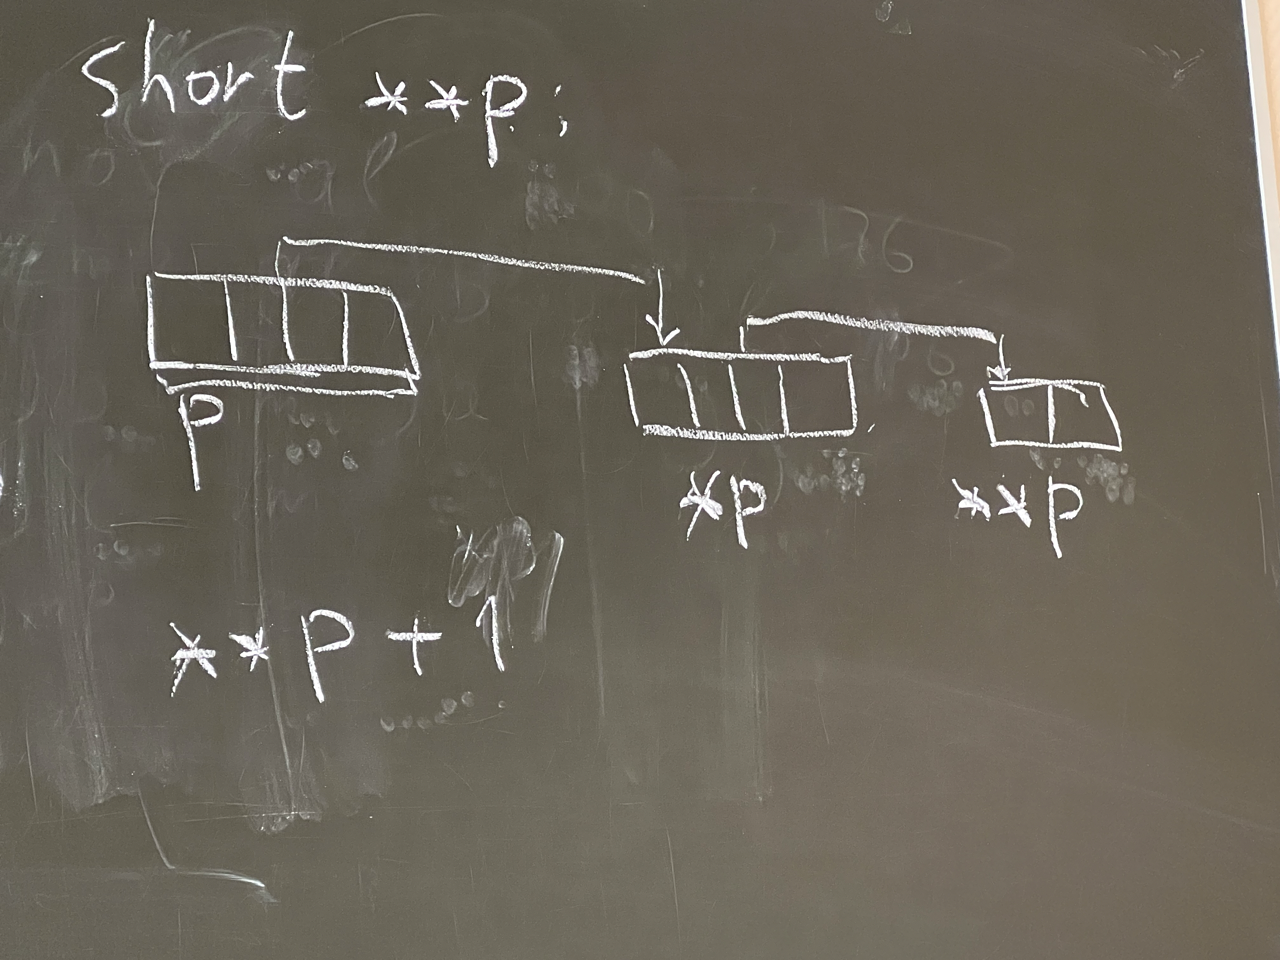 short **p;
p
*p **p
**p+1